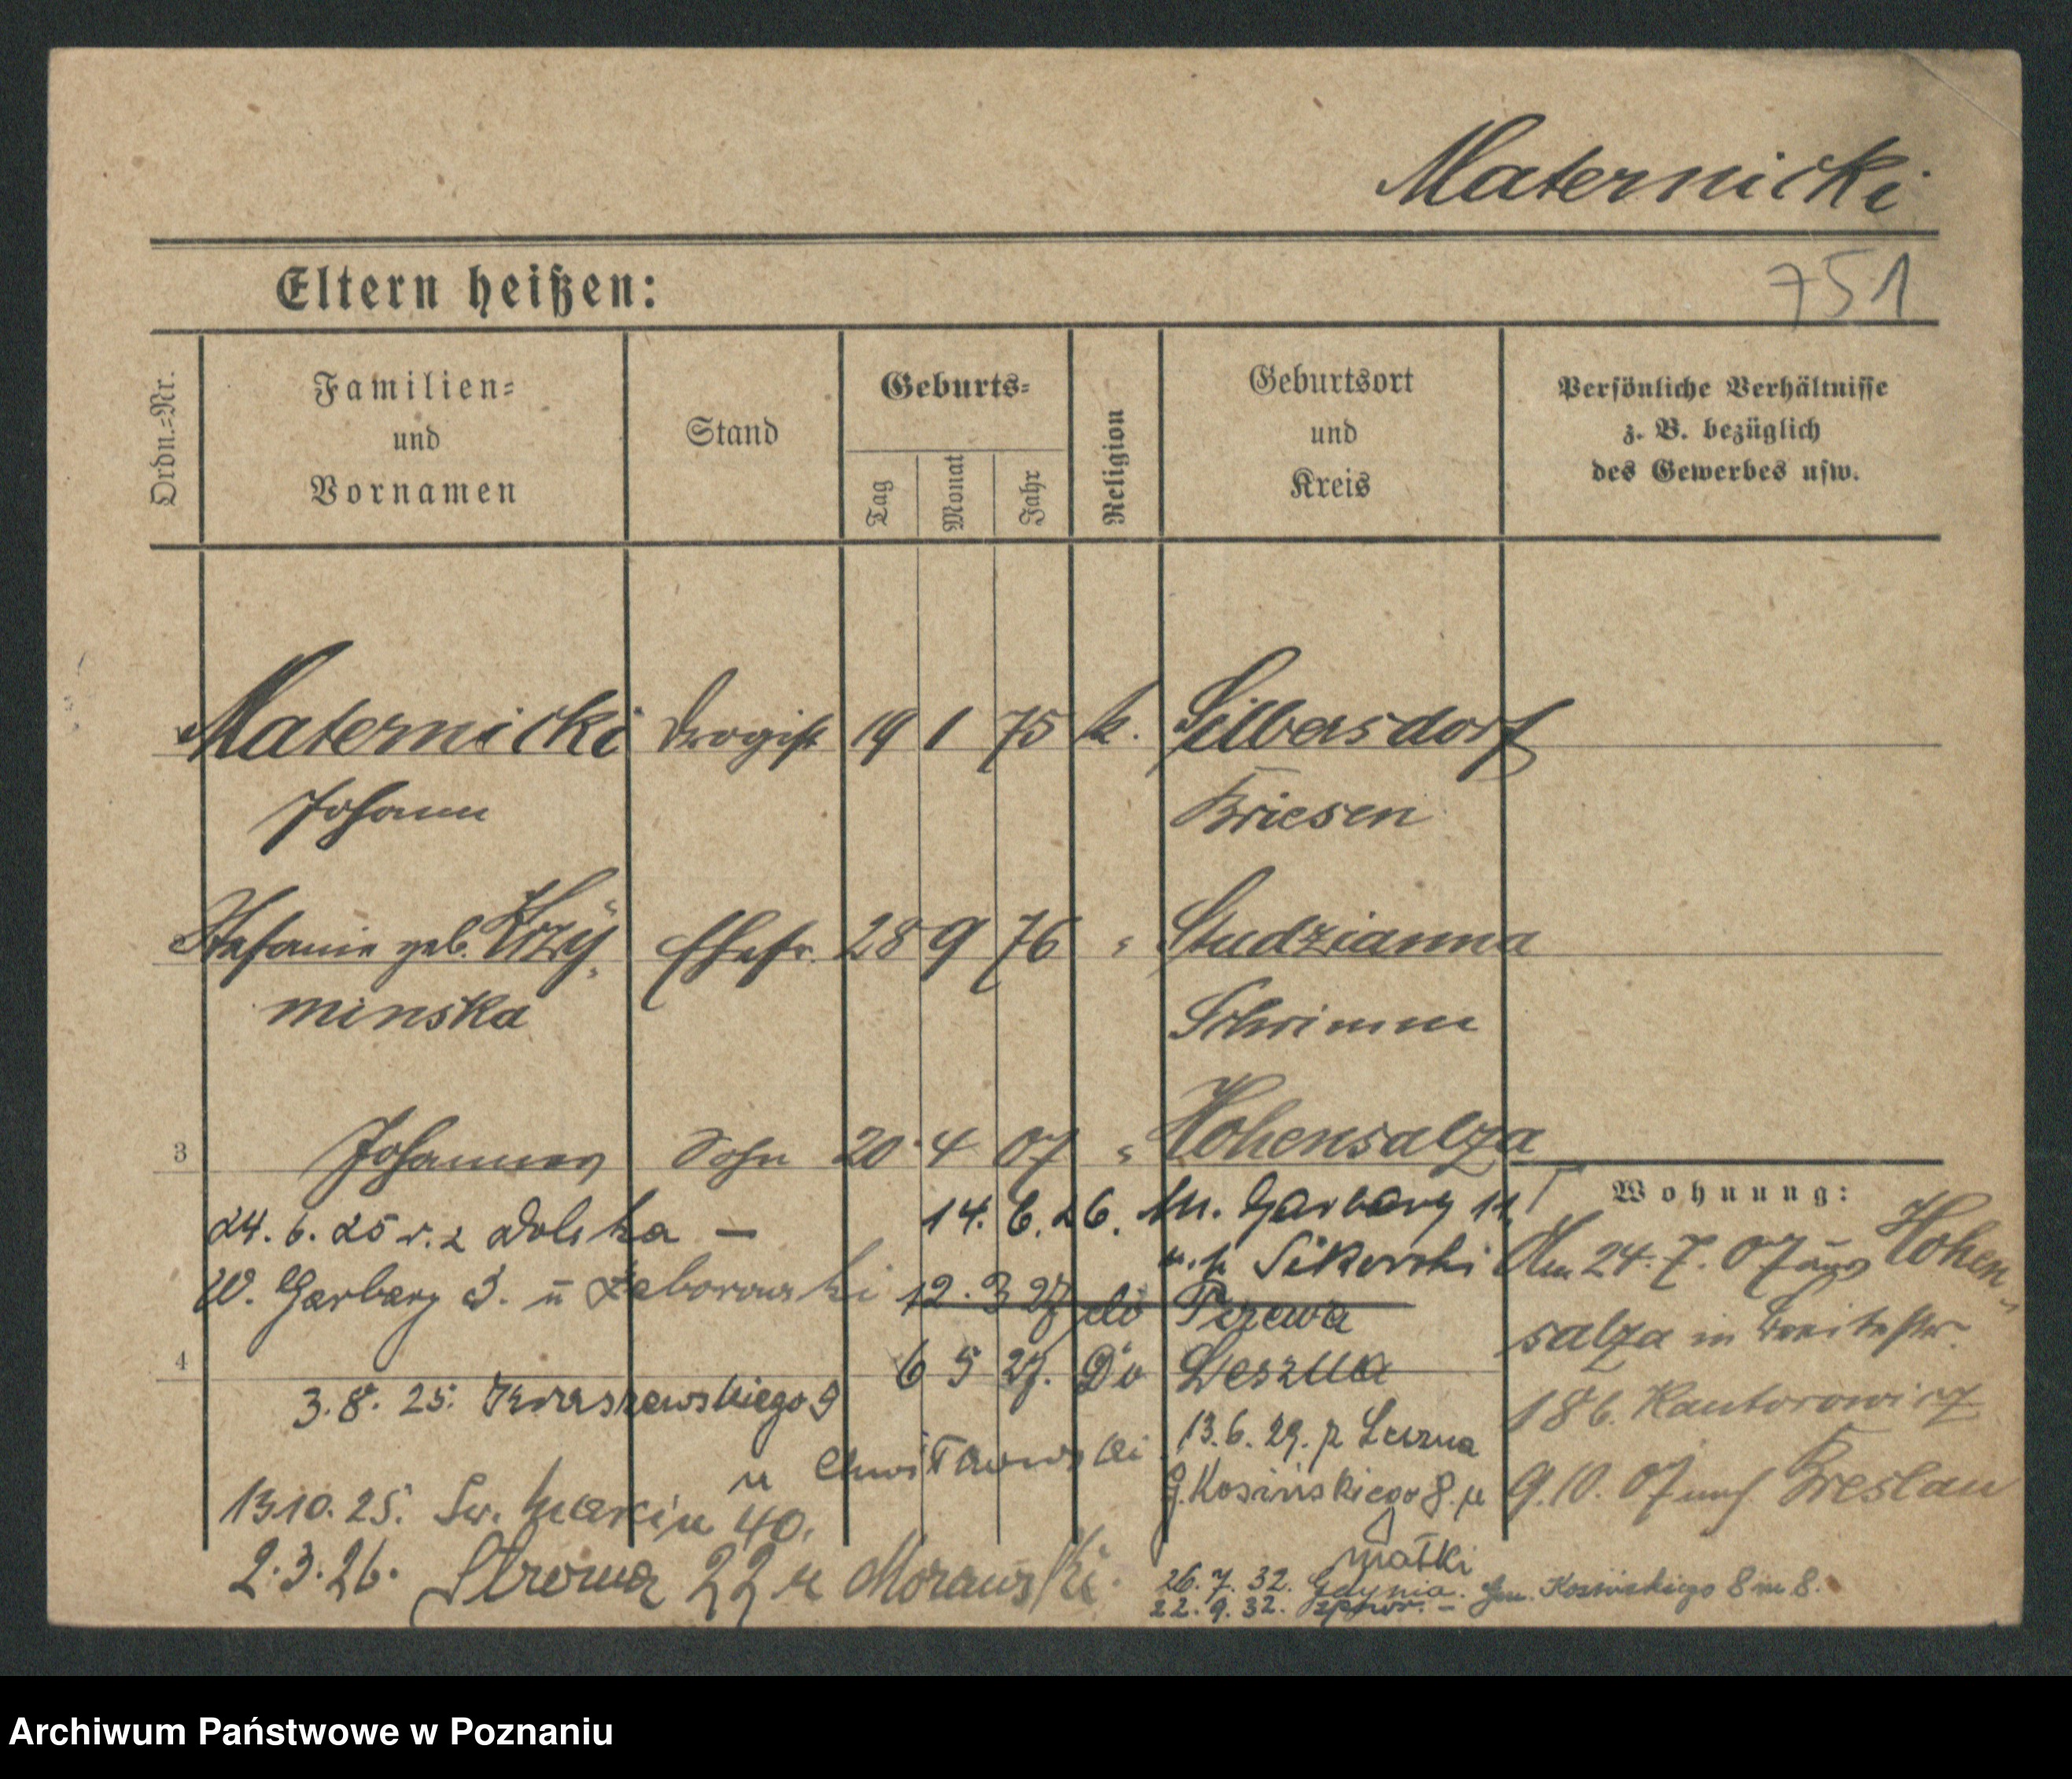 Maternicki
Eltern heißen:
751
Ordn.-Nr.
Familien-
und
Vornamen
Stand
Geburts-
Tag
Monat
Jahr
Religion
Geburtsort
und
Kreis
Persönliche Verhältnisse
z. B. bezüglich
des Gewerbes usw.
Maternicki Drogist 19 1 75 k. Silbersdorf
Johann Briesen
Stefanie geb. Krzy- Ehefr. 28 9 76 " Studzianna
minska Schrimm
3 Johannes Sohn 20 4 07 " Hohensalza
Wohnung:
24. 6. 25 r. z Dolska —
14. 6. 26. M. Garbary 11
u. p. Sikorski
W. Garbary 3. u Zaborowski
12. 3 27 do
6 5 27. Do Leszna
4
3. 8. 25. Kraszewskiego 9
u
13.10. 25. Św. Marcin 40.
2. 3. 26. Stroma 22 u Morawski
13. 6. 29. z Leszna
G. Kosińskiego 8. u
matki
26. 7. 32. Gdynia. Gen. Kosińskiego 8 m 8.
22. 9. 32.
Am 24. 7. 07 aus Hohen-
salza in Breitestr.
18b. Kantorowicz
9. 10. 07 nach Breslau
Archiwum Państwowe w Poznaniu